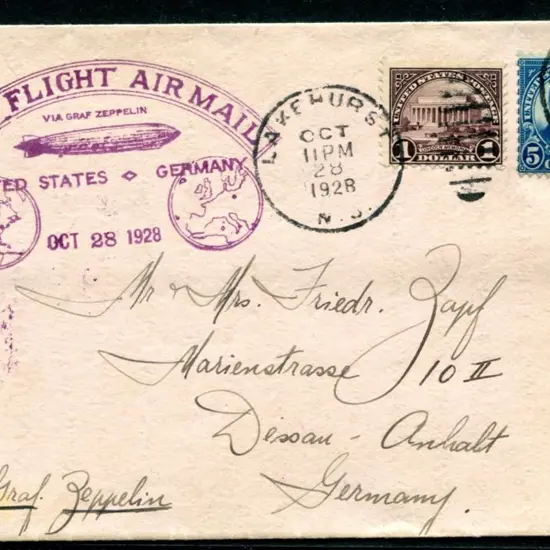 FLIGHT AIR MAIL
VIA GRAF ZEPPELIN
ED STATES ◇ GERMANY
OCT 28 1928
LAKEHURST
OCT
11PM
28
1928
N.J.
UNITED STATES POSTAGE
LINCOLN MEMORIAL
1 DOLLAR 1
5
Mr & Mrs. Friedr. Zapf
Marienstrasse 10 II
Dessau - Anhalt
Germany.
Graf. Zeppelin